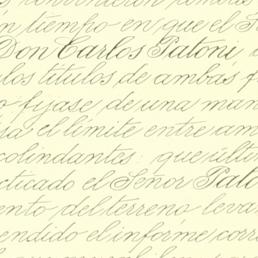 convinieron ambas
n tiempo en que el S
Don Carlos Patoni,
los títulos de ambas f
o fijase de una man
sa el límite entre am
colindantes: que últi
cticado el Señor Pato
ento del terreno leva
endido el informe corr